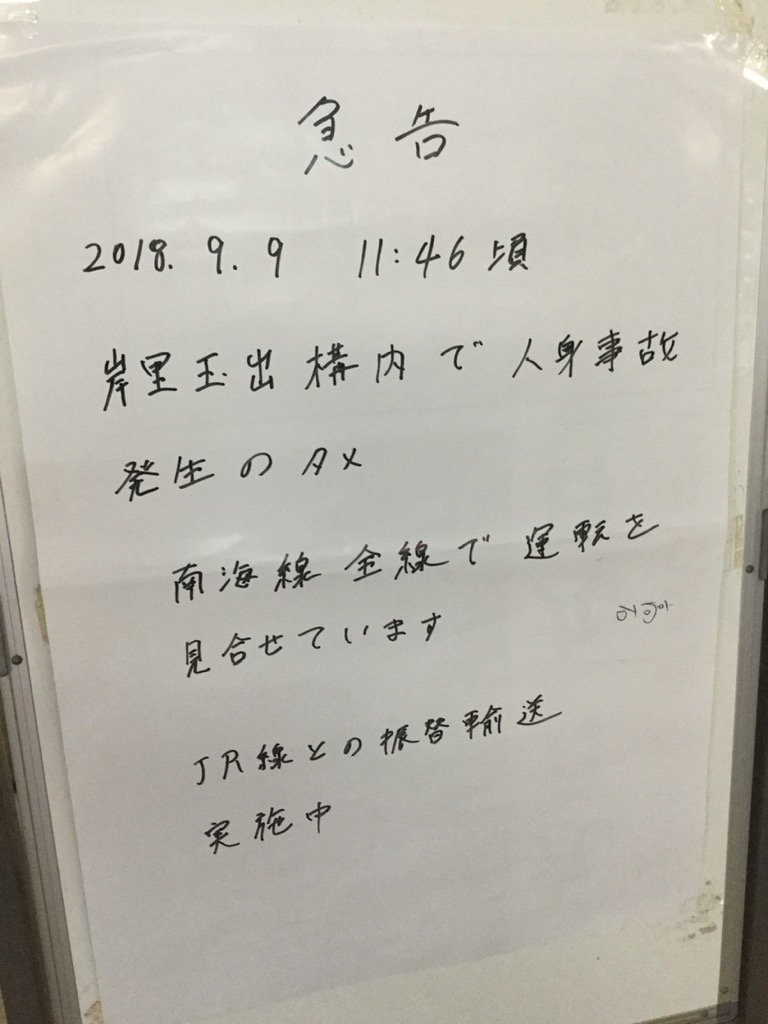 急告
2018. 9. 9 11:46頃
岸里玉出構内で人身事故
発生のタメ
南海線全線で運転を
見合せています
JR線との振替輸送
実施中